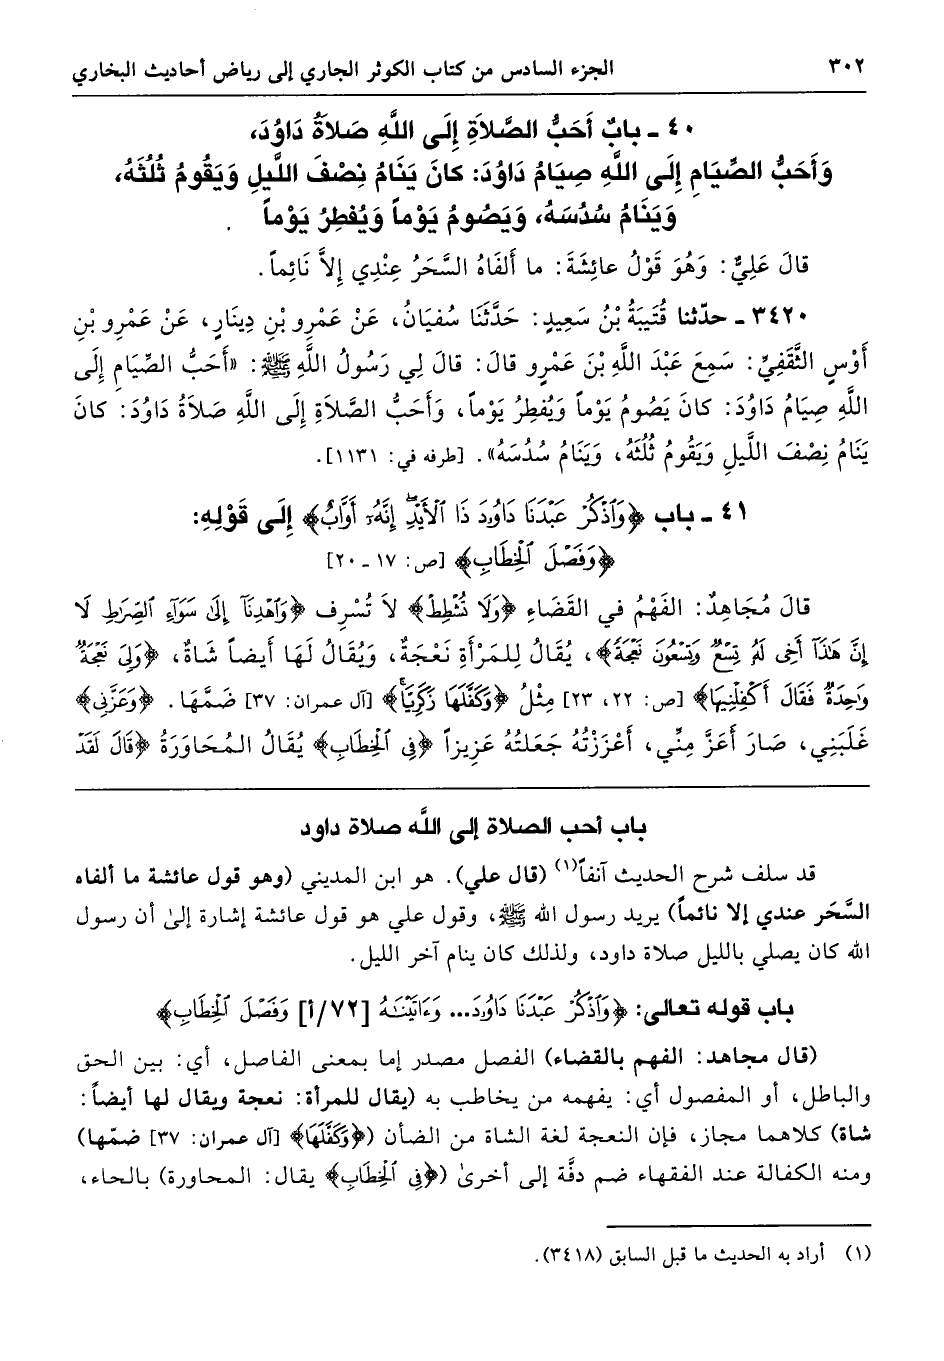 ٣٠٢ الجزء السادس من كتاب الكوثر الجاري إلى رياض أحاديث البخاري
٤٠ ـ بابٌ أَحَبُّ الصَّلاَةِ إِلَى اللَّهِ صَلاَةُ دَاوُدَ،
وَأَحَبُّ الصِّيَامِ إِلَى اللَّهِ صِيَامُ دَاوُدَ: كانَ يَنَامُ نِصْفَ اللَّيلِ وَيَقُومُ ثُلُثَهُ،
وَيَنَامُ سُدُسَهُ، وَيَصُومُ يَوْماً وَيُفطِرُ يَوْماً .
قالَ عَلِيٌّ: وَهُوَ قَوْلُ عائِشَةَ: ما أَلفَاهُ السَّحَرُ عِنْدِي إِلاَّ نَائِماً.
٣٤٢٠ ـ حدّثنا قُتَيبَةُ بْنُ سَعِيدٍ: حَدَّثَنَا سُفيَانُ، عَنْ عَمْرِو بْنِ دِينَارٍ، عَنْ عَمْرِو بْنِ
أَوْسٍ الثَّقَفِيِّ: سَمِعَ عَبْدَ اللَّهِ بْنَ عَمْرٍو قالَ: قالَ لِي رَسُولُ اللَّهِ ﷺ: «أَحَبُّ الصِّيَامِ إِلَى
اللَّهِ صِيَامُ دَاوُدَ: كانَ يَصُومُ يَوْماً وَيُفطِرُ يَوْماً، وَأَحَبُّ الصَّلاَةِ إِلَى اللَّهِ صَلاَةُ دَاوُدَ: كانَ
يَنَامُ نِصْفَ اللَّيلِ وَيَقُومُ ثُلُثَهُ، وَيَنَامُ سُدُسَهُ». [طرفه في: ١١٣١].
٤١ ـ باب ﴿وَٱذْكُرْ عَبْدَنَا دَاوُۥدَ ذَا ٱلْأَيْدِۖ إِنَّهُۥٓ أَوَّابٌ﴾ إِلَى قَوْلِهِ:
﴿وَفَصْلَ ٱلْخِطَابِ﴾ [ص: ١٧ ـ ٢٠]
قالَ مُجَاهِدٌ: الفَهْمُ في القَضَاءِ ﴿وَلَا تُشْطِطْ﴾ لاَ تُسْرِف ﴿وَٱهْدِنَآ إِلَىٰ سَوَآءِ ٱلصِّرَٰطِ لَا
إِنَّ هَٰذَآ أَخِى لَهُۥ تِسْعٌ وَتِسْعُونَ نَعْجَةً﴾، يُقَالُ لِلمَرْأَةِ نَعْجَةٌ، وَيُقَالُ لَهَا أَيضاً شَاةٌ، ﴿وَلِىَ نَعْجَةٌ
وَٰحِدَةٌ فَقَالَ أَكْفِلْنِيهَا﴾ [ص: ٢٢، ٢٣] مِثْلُ ﴿وَكَفَّلَهَا زَكَرِيَّا﴾ [آل عمران: ٣٧] ضَمَّهَا. ﴿وَعَزَّنِى﴾
غَلَبَنِي، صَارَ أَعَزَّ مِنِّي، أَعْزَزْتُهُ جَعَلتُهُ عَزِيزاً ﴿فِى ٱلْخِطَابِ﴾ يُقَالُ المُحَاوَرَةُ ﴿قَالَ لَقَدْ
باب أحب الصلاة إلى الله صلاة داود
قد سلف شرح الحديث آنفاً(١) (قال علي). هو ابن المديني (وهو قول عائشة ما ألفاه
السَّحَر عندي إلا نائماً) يريد رسول الله ﷺ، وقول علي هو قول عائشة إشارة إلىٰ أن رسول
الله كان يصلي بالليل صلاة داود، ولذلك كان ينام آخر الليل.
باب قوله تعالى: ﴿وَٱذْكُرْ عَبْدَنَا دَاوُۥدَ... وَءَاتَيْنَٰهُ [٧٢/أ] وَفَصْلَ ٱلْخِطَابِ﴾
(قال مجاهد: الفهم بالقضاء) الفصل مصدر إما بمعنى الفاصل، أي: بين الحق
والباطل، أو المفصول أي: يفهمه من يخاطب به (يقال للمرأة: نعجة ويقال لها أيضاً:
شاة) كلاهما مجاز، فإن النعجة لغة الشاة من الضأن (﴿وَكَفَّلَهَا﴾ [آل عمران: ٣٧] ضمّها)
ومنه الكفالة عند الفقهاء ضم دفَّة إلى أخرىٰ (﴿فِى ٱلْخِطَابِ﴾ يقال: المحاورة) بالحاء،
(١) أراد به الحديث ما قبل السابق (٣٤١٨).